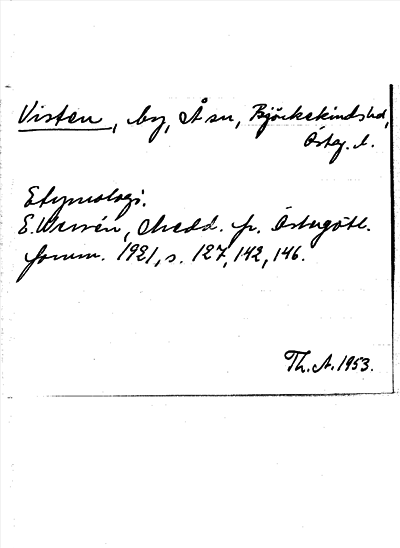 Visten, by, Åsn, Björkekinds hd,
Östeg. l.
Etymologi.
E. Wessén, Medd. fr. Östergötl.
fornm. 1921, s. 127, 142, 146.
Th. A. 1953.